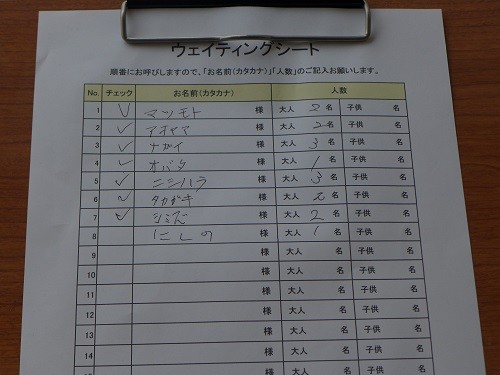 ウェイティングシート
順番にお呼びしますので、「お名前(カタカナ)」「人数」のご記入お願いします。
No. チェック お名前(カタカナ) 人数
1 ✓ マツモト 様 大人 2 名 子供 名
2 ✓ アオヤマ 様 大人 2 名 子供 名
3 ✓ ナガイ 様 大人 3 名 子供 名
4 ✓ オバタ 様 大人 1 名 子供 名
5 ✓ ニシハラ 様 大人 3 名 子供 名
6 ✓ タカガキ 様 大人 2 名 子供 名
7 ✓ 様 大人 2 名 子供 名
8 にしの 様 大人 1 名 子供 名
9 様 大人 名 子供 名
10 様 大人 名 子供 名
11 様 大人 名 子供 名
12 様 大人 名 子供 名
13 様 大人 名 子供 名
14 様 大人 名 子供 名